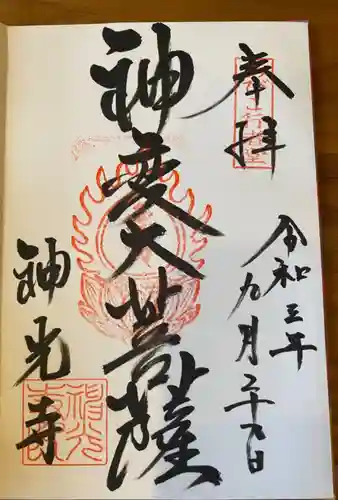 奉拝
令和三年
九月
神変大菩薩
神光寺